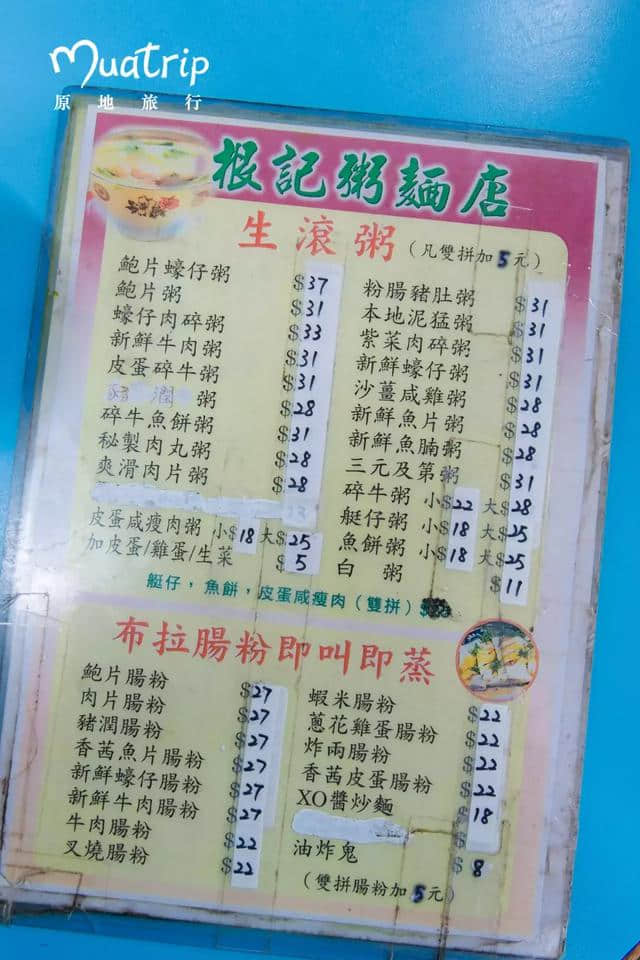 Muatrip
原地旅行
根記粥麵店
生滾粥(凡雙拼加5元)
鮑片蠔仔粥 $37
鮑片粥 $31
蠔仔肉碎粥 $33
新鮮牛肉粥 $31
皮蛋碎牛粥 $31
豬潤粥 $28
碎牛魚餅粥 $31
秘製肉丸粥 $28
爽滑肉片粥 $28
皮蛋咸瘦肉粥 小$18 大$25
加皮蛋/雞蛋/生菜 $5
粉腸豬肚粥 $31
本地泥猛粥 $31
紫菜肉碎粥 $31
新鮮蠔仔粥 $31
沙薑咸雞粥 $28
新鮮魚片粥 $28
新鮮魚腩粥 $28
三元及第粥 $31
碎牛粥 小$22 大$28
艇仔粥 小$18 大$25
魚餅粥 小$18 大$25
白粥 $11
艇仔,魚餅,皮蛋咸瘦肉(雙拼)$
布拉腸粉即叫即蒸
鮑片腸粉 $27
肉片腸粉 $27
豬潤腸粉 $27
香茜魚片腸粉 $27
新鮮蠔仔腸粉 $27
新鮮牛肉腸粉 $27
牛肉腸粉 $22
叉燒腸粉 $22
蝦米腸粉 $22
蔥花雞蛋腸粉 $22
炸兩腸粉 $22
香茜皮蛋腸粉 $22
XO醬炒麵 $18
$
油炸鬼 $8
(雙拼腸粉加5元)